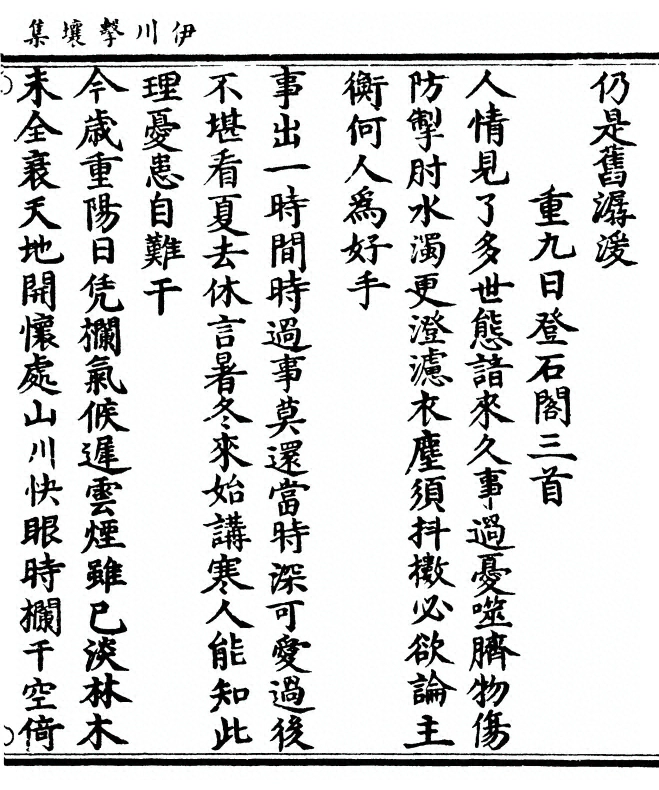 伊川擊壤集
仍是舊潺湲
重九日登石閣三首
人情見了多世態諳來久事過憂噬臍物傷
防掣肘水濁更澄濾衣塵須抖擻必欲論主
衡何人爲好手
事出一時間時過事莫還當時深可愛過後
不堪看夏去休言暑冬來始講寒人能知此
理憂患自難干
今歲重陽日凭欄氣候遲雲煙雖已淡林木
未全衰天地開懷處山川快眼時欄干空倚